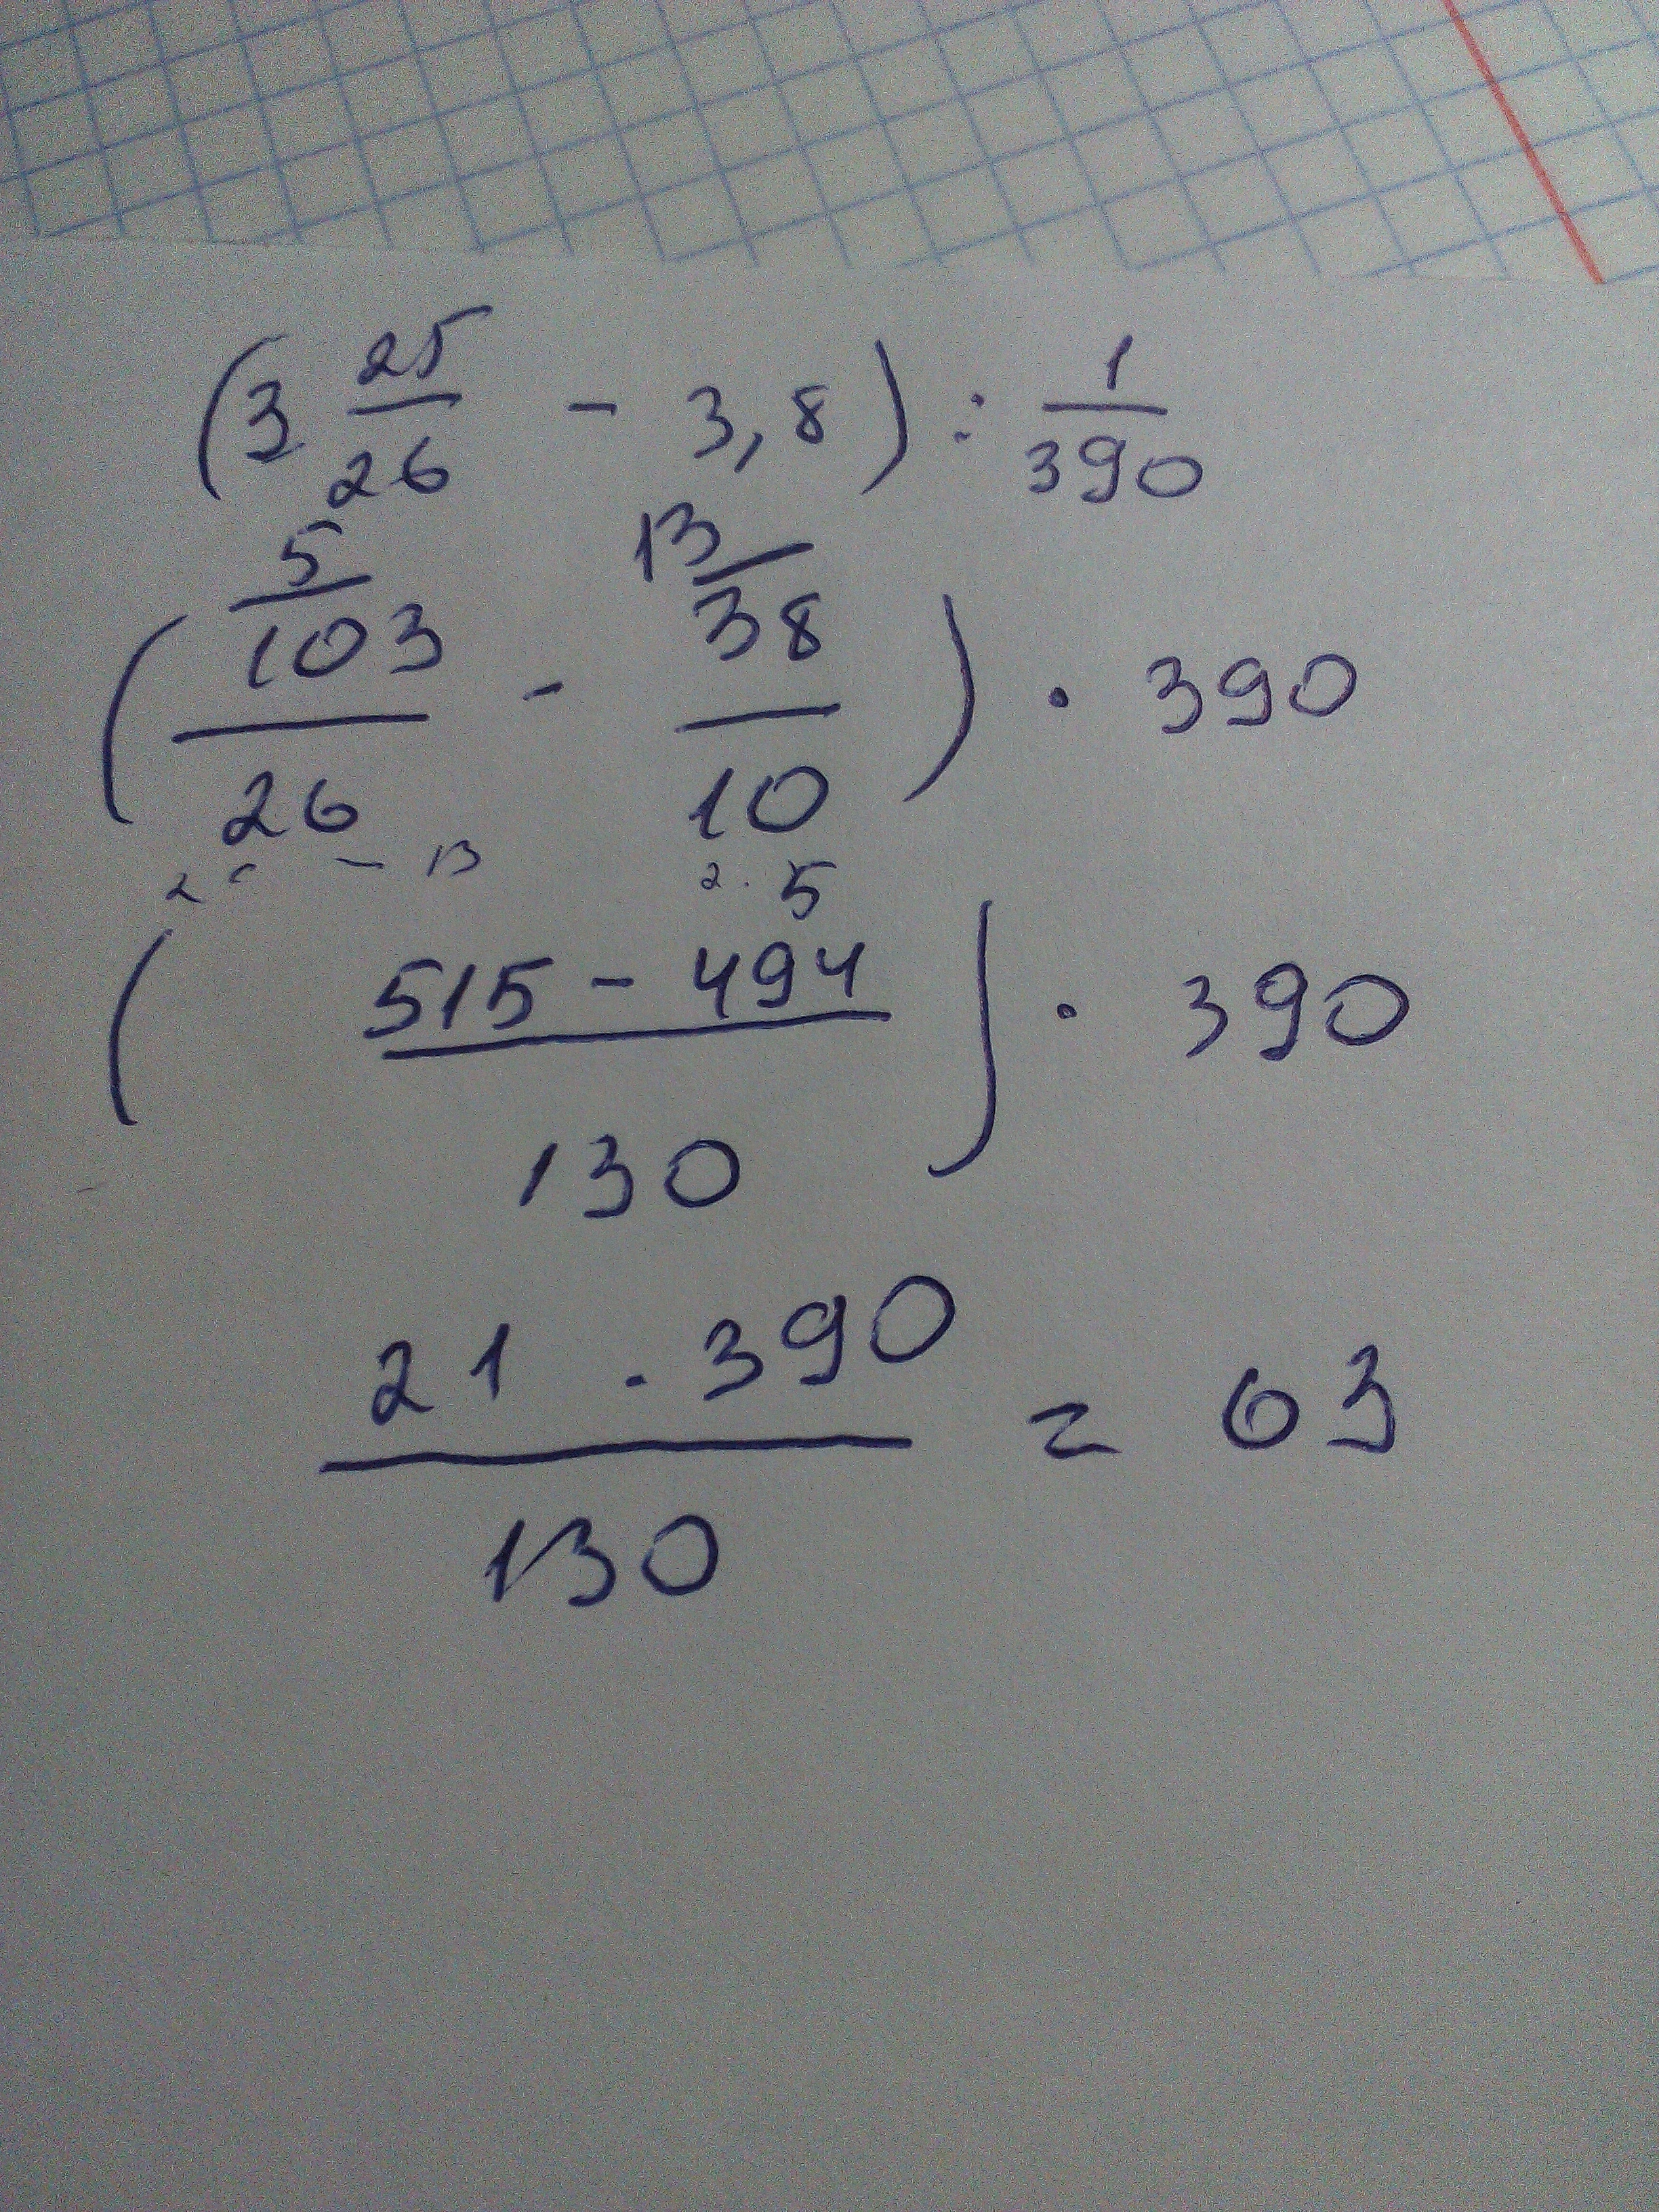 (3 25/26 - 3,8) : 1/390
5 13
(103/26 - 38/10) · 390
2 · 13 2 · 5
(515 - 494 / 130) · 390
21 · 390 / 130 = 63